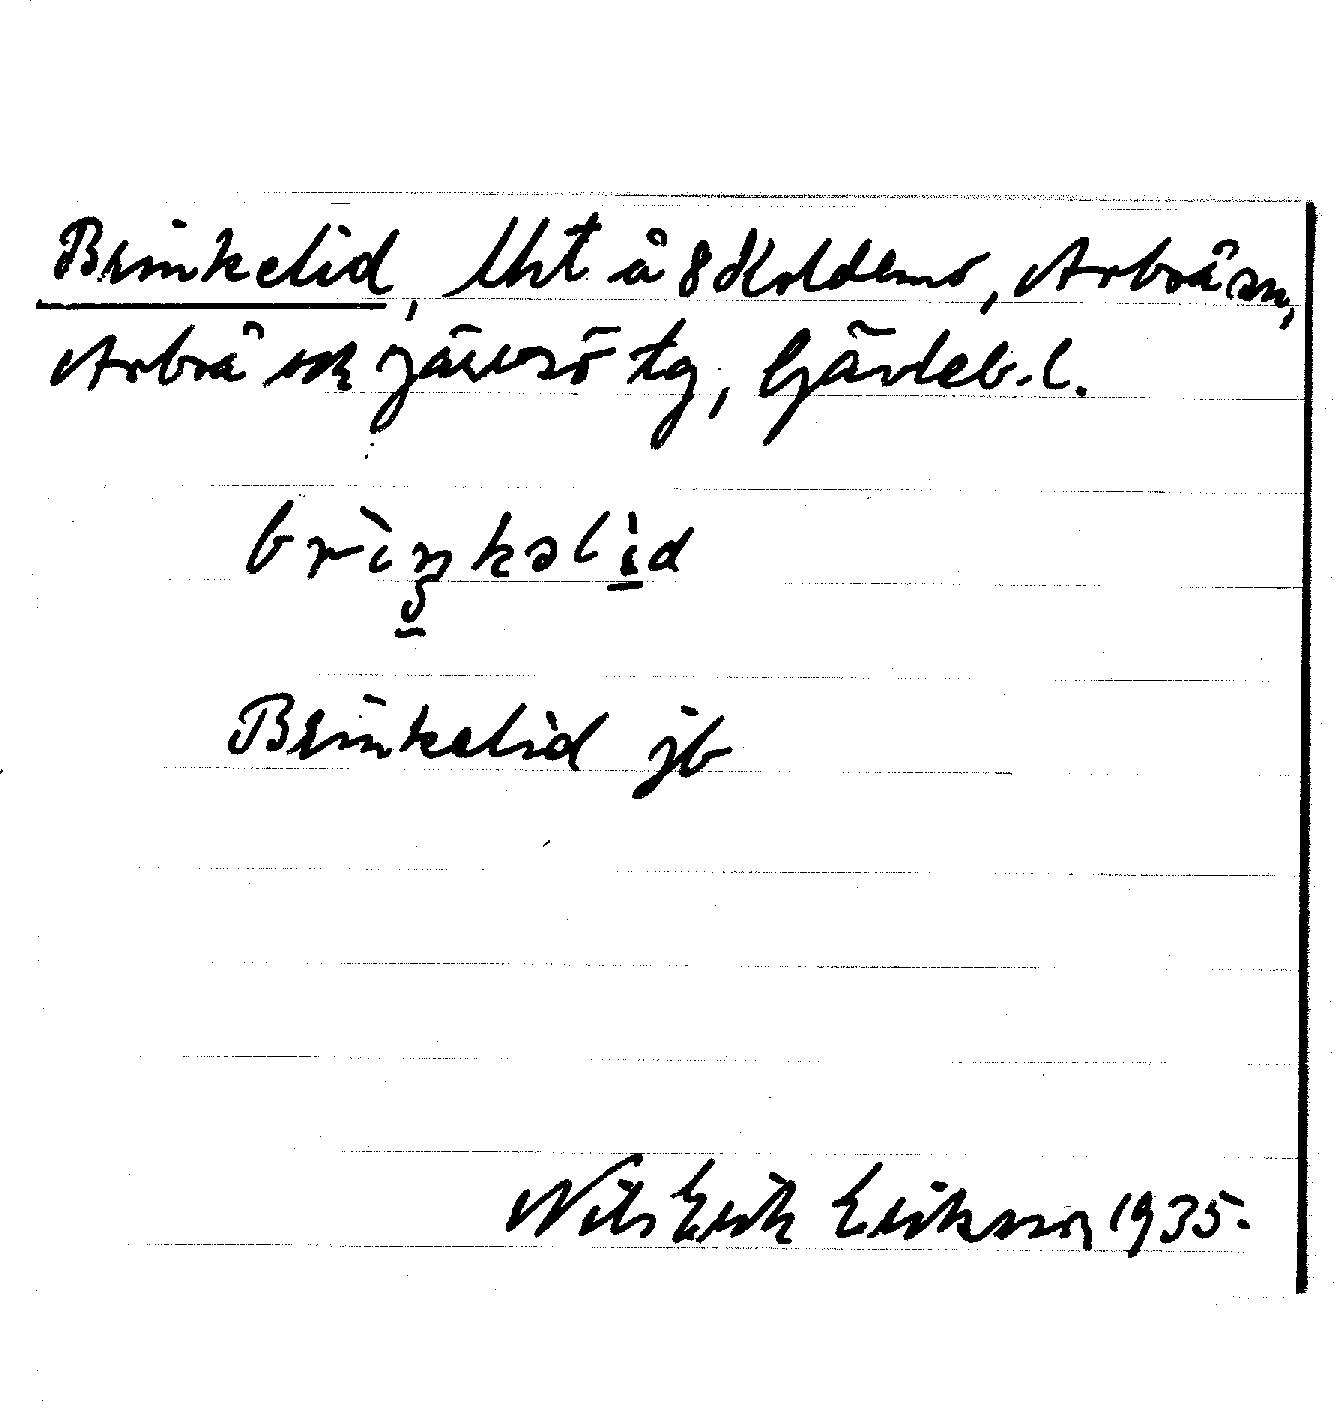 Brinkelid, lht å 8 Koldemo, Arbrå sn,
Arbrå och Järvsö tg, Gävleb. l.
brìŋkəlid
Brinkelid jb
Nils Erik Erikson 1935.